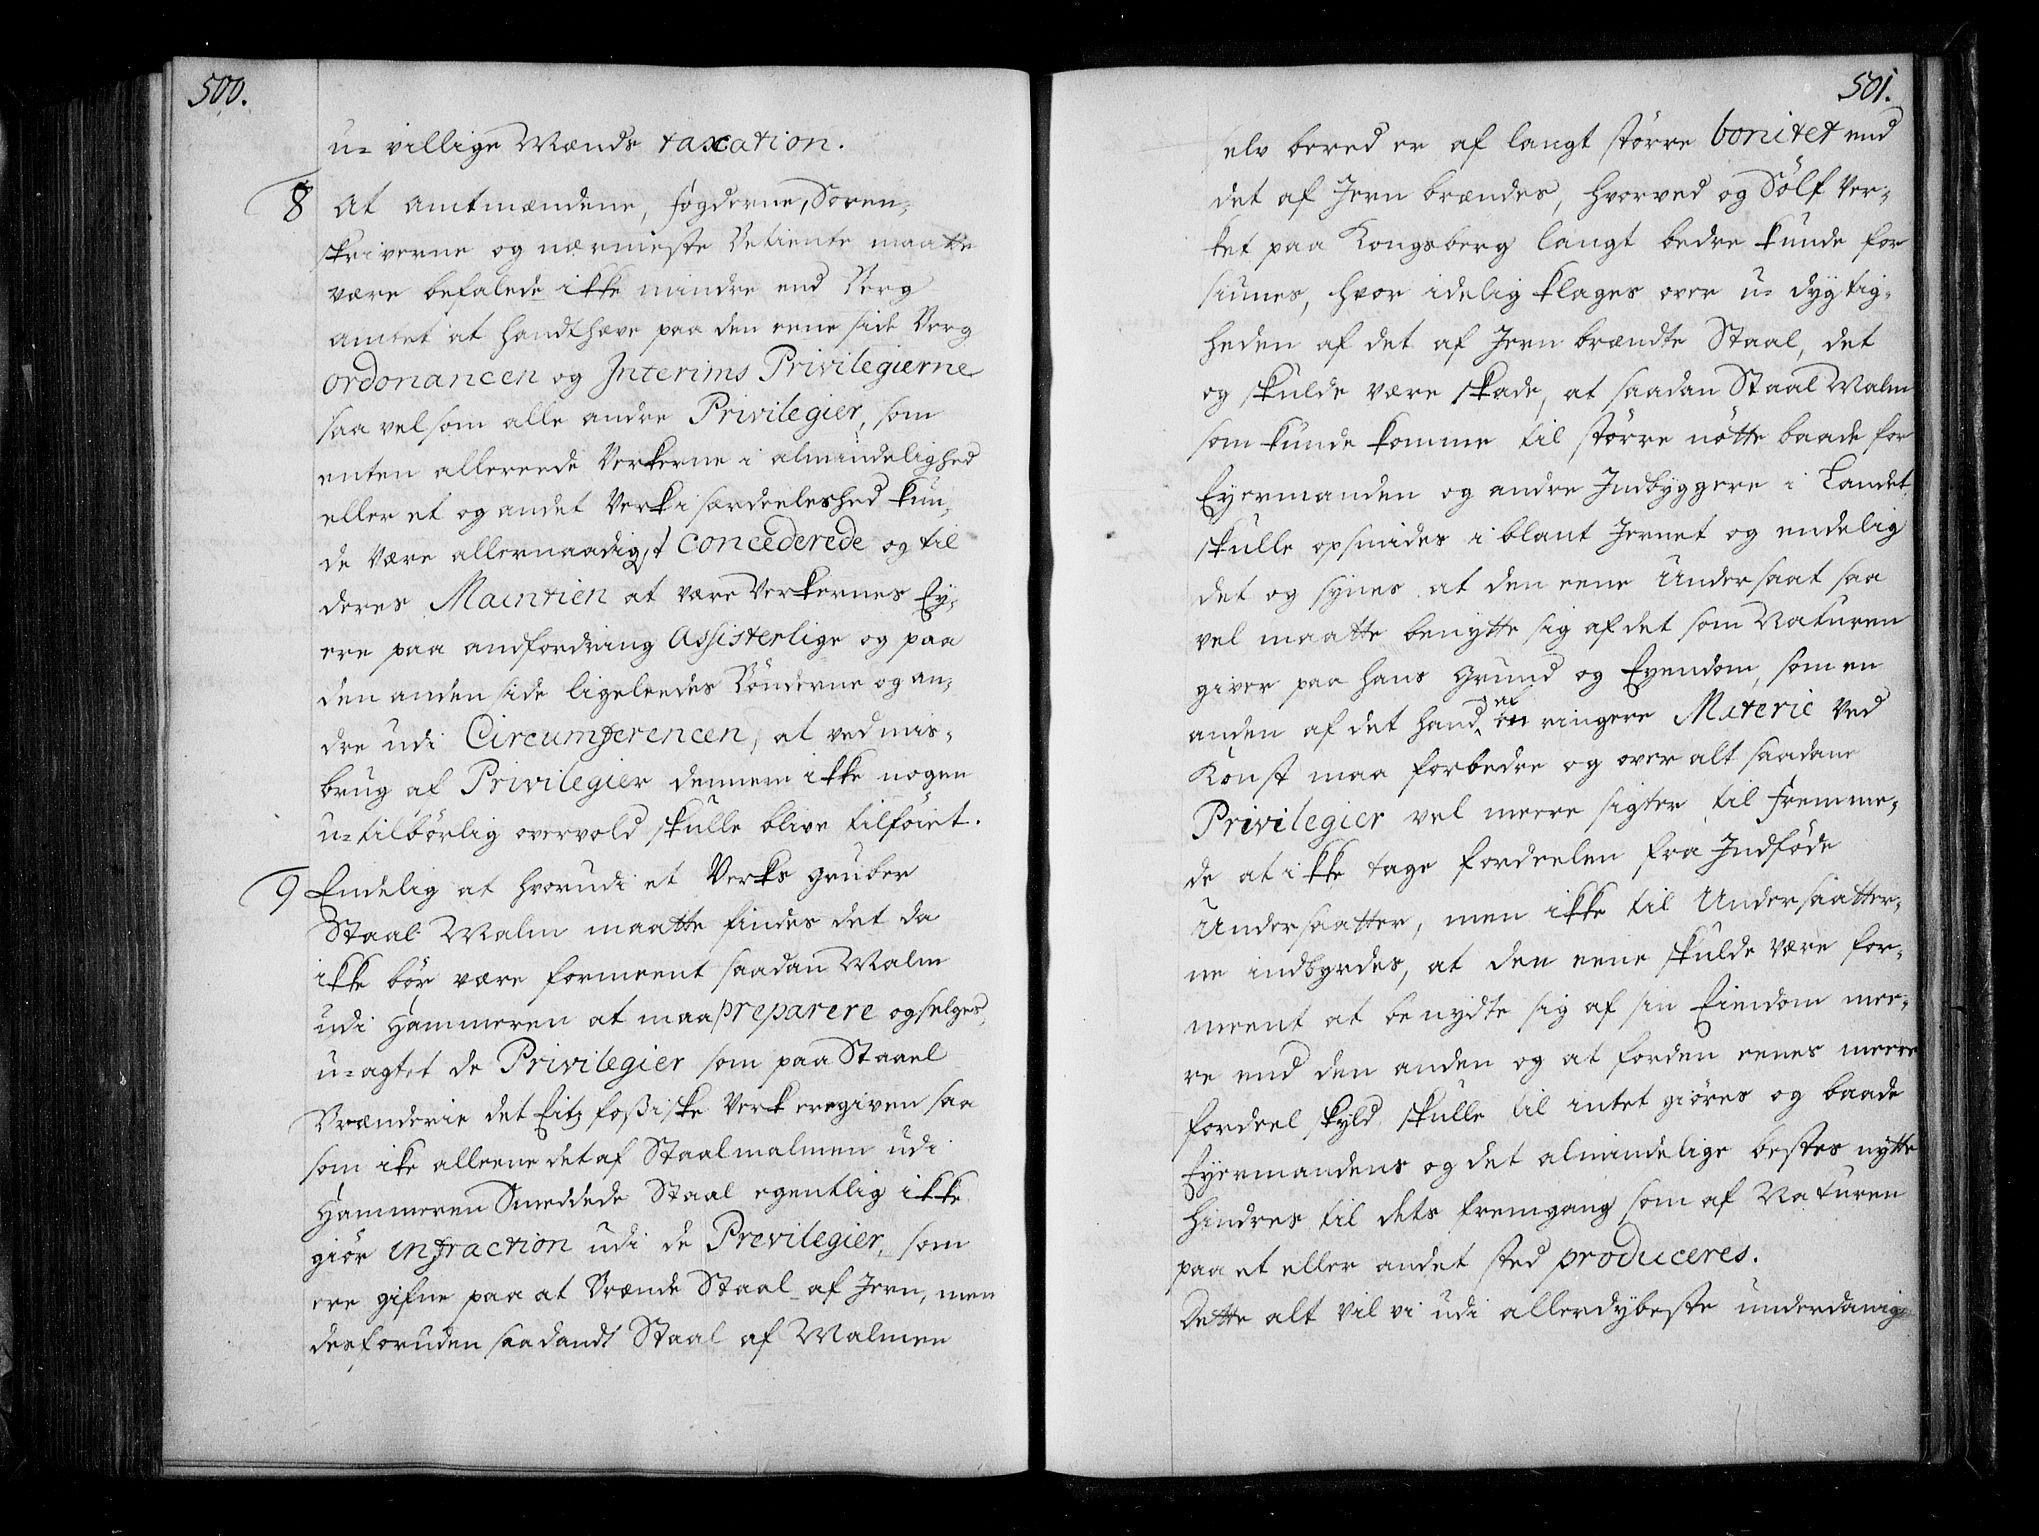 500.
u- villige Mænds taxation.
8 At Amtmændene, fogderne, Soren-
skriverne og nærmeste Betiente maatte
være befalede ikke mindre end Berg
amtet at handthæve paa den eene side Berg
ordonancen og Interims Privilegierne
saa vel som alle andre Privilegier, som
enten allereede Verkerne i almindelighed
eller et og andet Verk i særdeeleshed kun-
de være allernaadigst concederede og til
deres Maintien at være Verkernes Ey-
ere paa andfordring assisterlige og paa
den anden side ligeleedes Bønderne og an-
dre udi Circumferencen, at ved mis-
brug af Privilegier dennem ikke nogen
u-tilbørlig overvold skulle blive tilføiet.
9 Endelig at hvorudi et Verks gruber
Staal Malm maatte findes det da
ikke bør være formeent saadan Malm
udi Hammeren at maa preparere og selges,
u-agtet de Privilegier som paa Staael
Brænderie det Eitzfossiske Verk ere given saa
som ike alleene det af Staalmalmen udi
Hammeren Smeddede Staal egentlig ikke
giør infraction udi de Previlegier, som
ere gifne paa at Brænde Staal af Jern, men
desforuden saadandt Staal af Malmen
501.
elv bered er af langt større bonitet end
det af Jern brændes, hvorved og Sølf Ver-
ket paa Kongsberg langt bedre kunde for
siunes, hvor idelig klages over u- dygtig-
heden af det af Jern brændte Staal, det
og skulde være skade, at saadan Staal Malm
som kunde komme til større nøtte baade for
Eyermanden og andre Indbyggere i Landet
skulle opsmides i blant Jernet og endelig
det og synes at den eene Undersaat saa
vel maatte benytte sig af det som Naturen
giver paa hans grund og Eyendom, som en
anden af det hand af en ringere Materie ved
Konst maa forbedre og over alt saadane
Privilegier vel meere sigter til fremme-
de at ikke tage fordeelen fra Indføde
Undersaatter, men ikke til Undersaatter-
ne indbyrdes, at den eene skulde være for-
meent at benydte sig af sin Eiendom mee-
re end den anden og at forden eenes meere
fordeel skyld skulle til intet giøres og baade
Eyermandens og det almindelige bestes nytte
hindres til dets fremgang som af Naturen
paa et eller andet sted produceres.
Dette alt vil vi udi allerdybeste underdanig